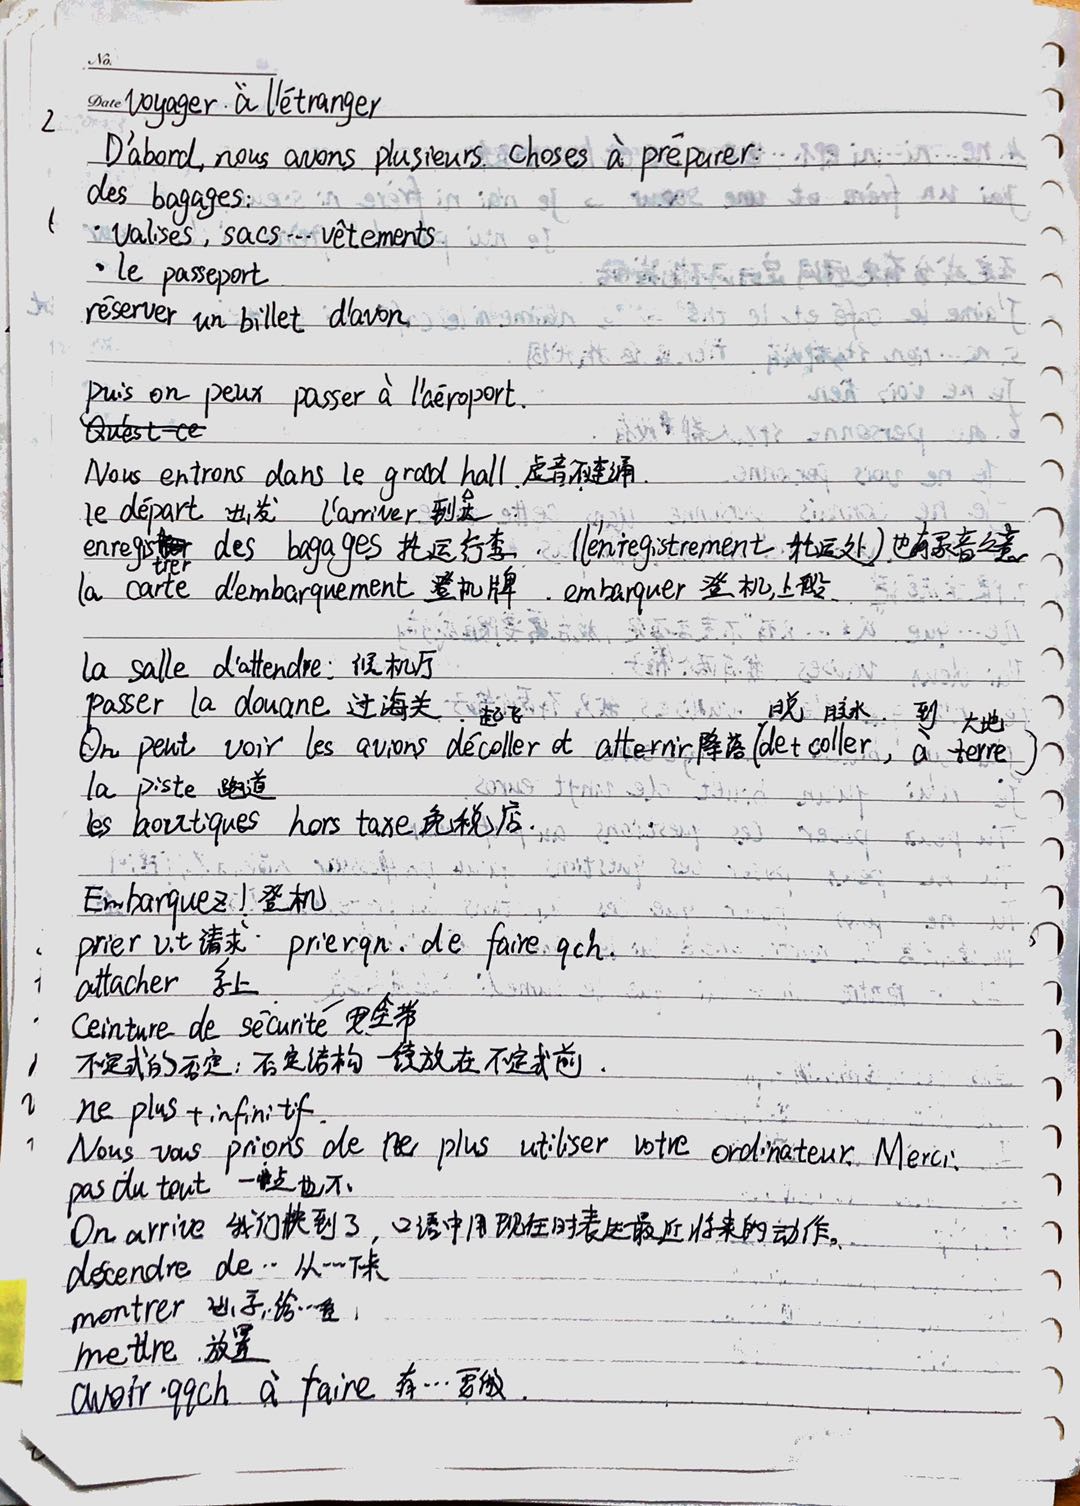 No.
Date Voyager à l'étranger
2
D'abord, nous avons plusieurs choses à préparer:
des bagages:
· valises, sacs … vêtements
· le passeport
réserver un billet d'avon.
puis on peux passer à l'aéroport.
Quest-ce
Nous entrons dans le grand hall 虚音不连诵.
le départ 出发 l'arriver 到达
enregistrer des bagages 托运行李. (l'enregistrement 托运处) 也有录音之意
la carte d'embarquement 登机牌. embarquer 登机,上船
la salle d'attendre: 候机厅
passer la douane 过海关
起飞 脱 胶水 到 大地
On peut voir les avions décoller et atterrir 降落 (de+coller, à terre)
la piste 跑道
les boutiques hors taxe 免税店.
Embarquez! 登机
prier v.t 请求. prier qn. de faire qch.
attacher 系上
Ceinture de sécurité 安全带
不定式的否定: 否定结构一律放在不定式前.
ne plus + infinitif.
Nous vous prions de ne plus utiliser votre ordinateur. Merci.
pas du tout 一点也不
On arrive 我们快到了, 口语中用现在时表达最近将来的动作。
descendre de … 从…下来
montrer 出示,给…看
mettre 放置
avoir qqch à faire 有…要做.